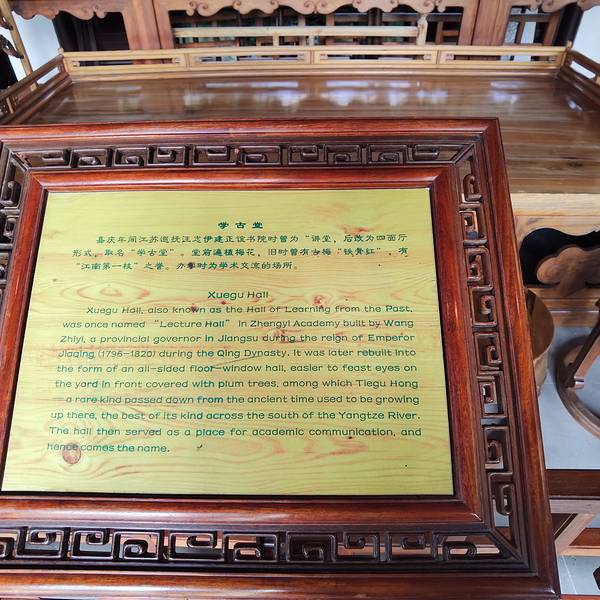 学古堂
嘉庆年间江苏巡抚汪志伊建正谊书院时曾为“讲堂，后改为四面厅
形式，取名“学古堂”，堂前遍植梅花，旧时曾有古梅“铁骨红”，有
“江南第一枝”之誉。办学时为学术交流的场所。
Xuegu Hall
Xuegu Hall, also known as the Hall of Learning from the Past,
was once named “Lecture Hall” in Zhengyi Academy built by Wang
Zhiyi, a provincial governor in Jiangsu during the reign of Emperor
Jiaqing (1796-1820) during the Qing Dynasty. It was later rebuilt into
the form of an all-sided floor-window hall, easier to feast eyes on
the yard in front covered with plum trees, among which Tiegu Hong
—a rare kind passed down from the ancient time used to be growing
up there, the best of its kind across the south of the Yangtze River.
The hall then served as a place for academic communication, and
hence comes the name.